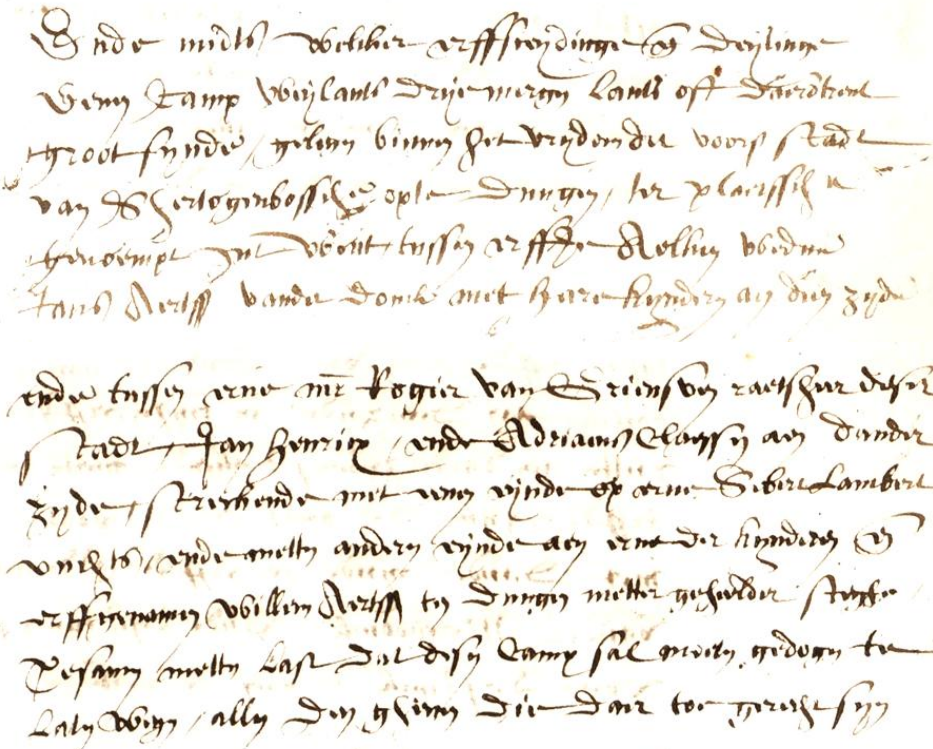 Ende midts welcker erffscheydinge en deylinge
eenen camp weylants drije mergen lants oft daerontrent
groot sijnde, gelegen binnen het vrydom der voors stadt
van Shertogenbossche opte Dungen, ter plaetssen
genoempt int Wout tussen erffve Aelken weduwe
Jans Aertss vande Donck met haere kynderen aen deen zyde
ende tussen erve mr Rogier van Griensven raetsheer deser
stadt, Jan Henricx, ende Adriaens Claessen aen dander
zyde, streckende met eenen eynde op erve Sebert Lambert
ende metten anderen eynde aen erve der kynderen en
erffgenamen Willem Aertss ten Dungen metter geheelder steghe
Tesamen metten last dat desen camp sal moeten gedogen te
laten wegen, allen den ghenen die daer toe gerecht syn